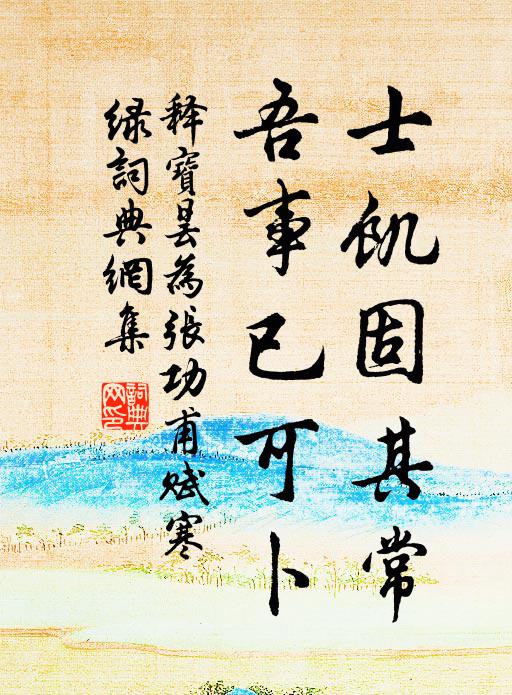 士飢固其常
吾事已可卜
释寶曇為張功甫賦寒
绿詞典網集
詞典
网印